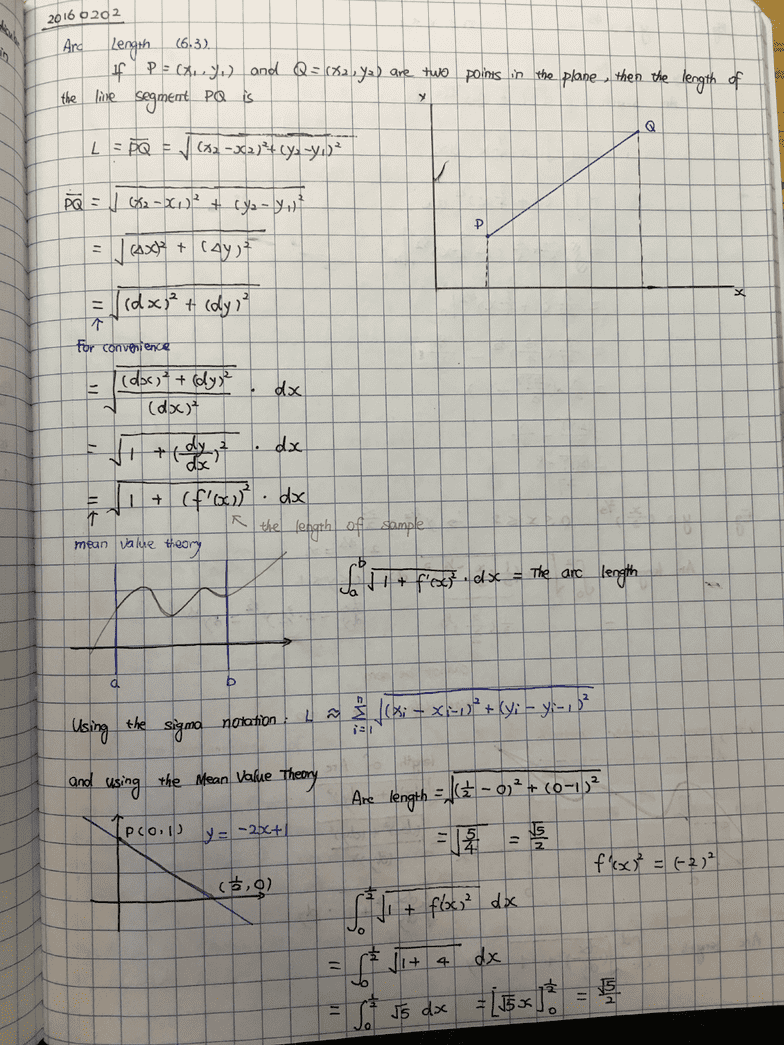 20160202
Arc Length (6.3)
If P = (x₁, y₁) and Q = (x₂, y₂) are two points in the plane, then the length of
the line segment PQ is
y
Q
P
x
L = P̅Q̅ = √((x₂ - x₂)² + (y₂ - y₁)²)
P̅Q̅ = √((x₂ - x₁)² + (y₂ - y₁)²)
= √((Δx)² + (Δy)²)
= √((dx)² + (dy)²)
↑
For convenience
= √(((dx)² + (dy)²)/(dx)²) · dx
= √(1 + (dy/dx)²) · dx
= √(1 + (f'(x))²) · dx
↑ ↖ the length of sample
mean value theory
∫ₐᵇ √(1 + f'(x)²) · dx = The arc length
a b
Using the sigma notation: L ≈ Σᵢ₌₁ⁿ √((xᵢ - xᵢ₋₁)² + (yᵢ - yᵢ₋₁)²)
and using the Mean Value Theory
P(0,1) y = -2x+1
(½, 0)
Arc length = √((½ - 0)² + (0-1)²)
= √(5/4) = √5/2
f'(x)² = (-2)²
∫₀^½ √(1 + f(x)²) dx
= ∫₀^½ √(1 + 4) dx
= ∫₀^½ √5 dx = [√5x]₀^½ = √5/2